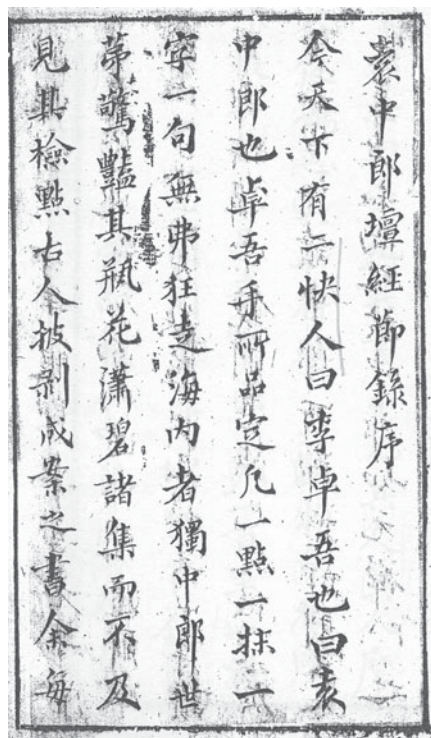 袁中郎壇經節錄序
今天下有二快人曰李卓吾也曰袁
中郎也卓吾手所品定凡一點一抹一
字一句無弗狂走海內者獨中郎世
苐驚豔其瓶花瀟碧諸集而不及
見其檢點古人披剥成案之書余每